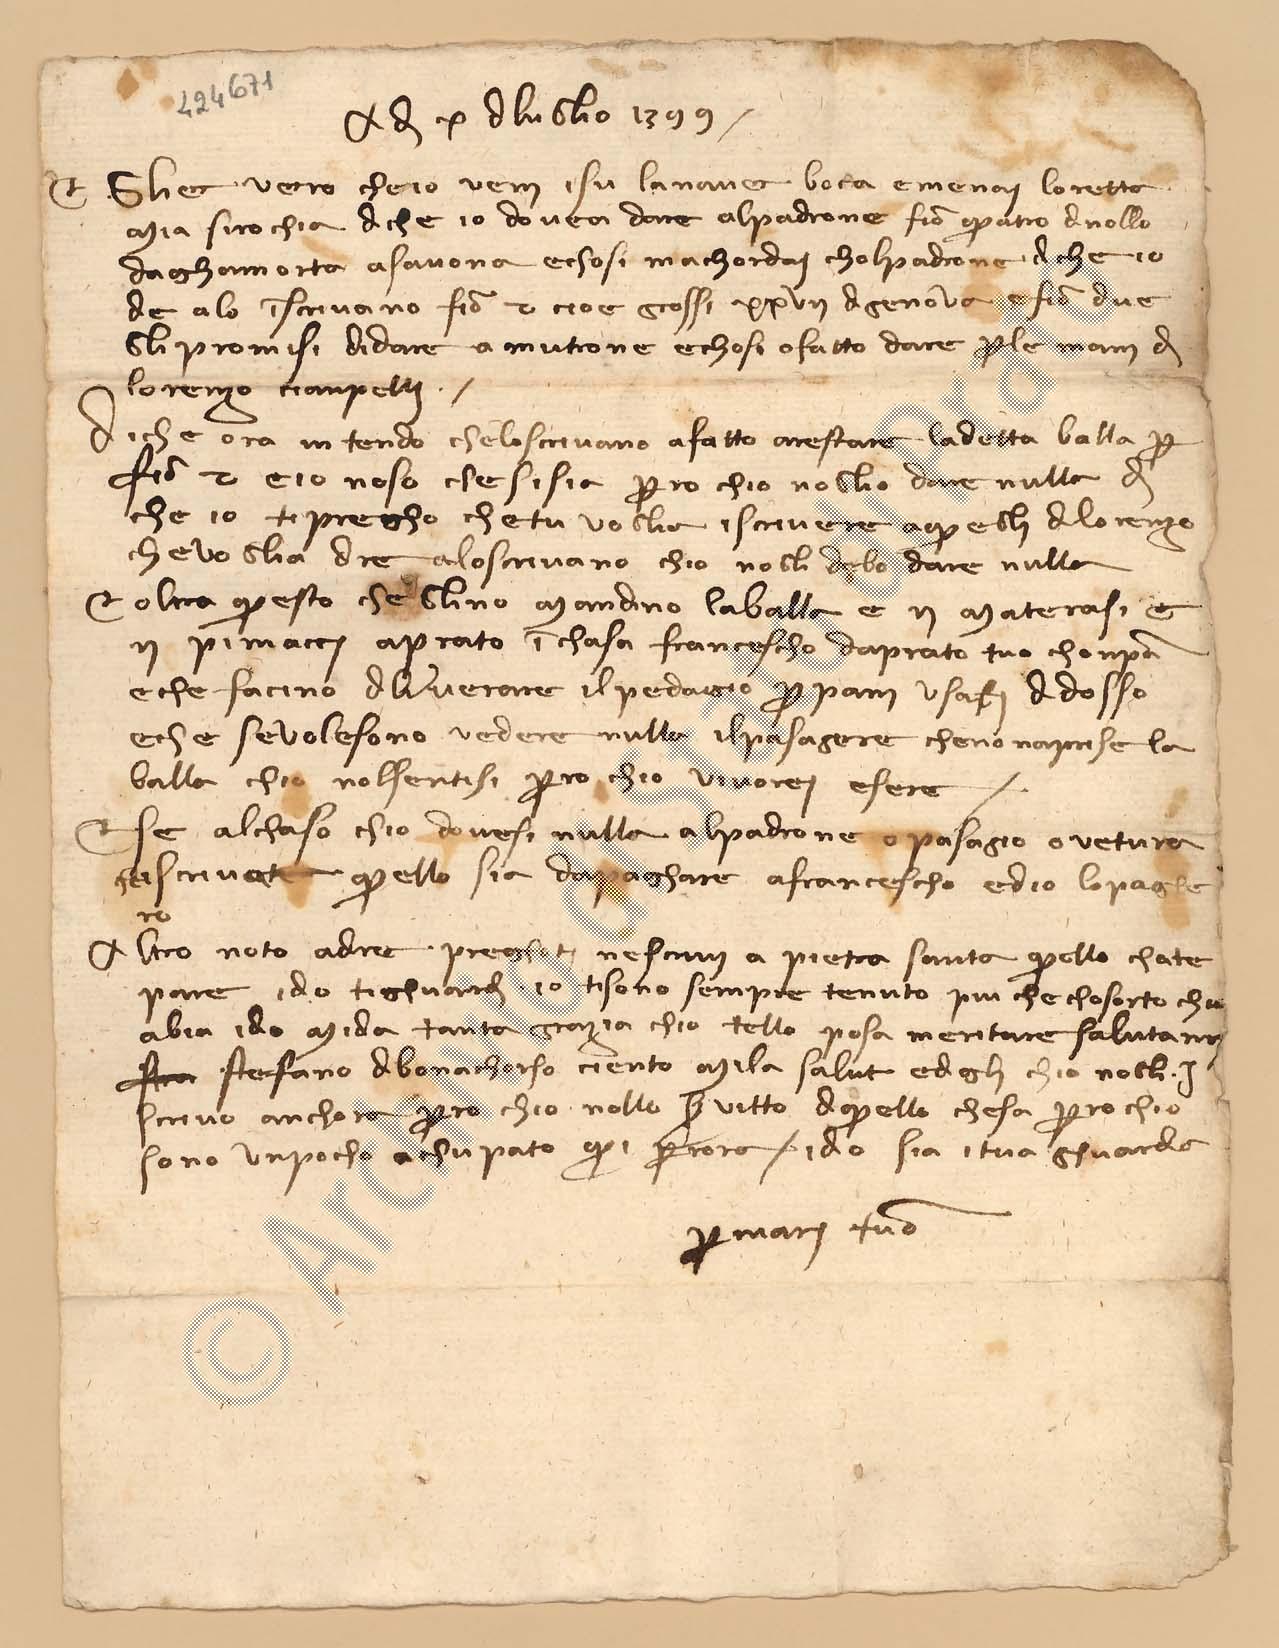 424671
A dì x di luglio 1399
E Gli è vero che io veni i su la nave boca e menai loretta
mia sirochia di che io dovea dare al padrone fio quatro di nollo
dagham morta a savona e chosi m achordai chol padrone di che io
de a lo iscrivano fio 2 cioe grossi xxvii di genova e fio due
gli promisi di dare a mutrone e chosi o fatto dare per le mani di
lorenzo ciampelli
Di che ora intendo che lo scrivano a fatto arestare la detta balla per
fio 2 e io no so che si sia pero ch io no gli o dare nulla di
che io ti pregho che tu voglia iscrivere a quegli di lorenzo
che voglia dire a lo scrivano ch io no gli debo dare nulla
E oltra questo che glino mandino la balla e ii materasi e
ii pimacci a prato in chasa francescho da prato tuo chonpa
e che facino diliverare il pedagio per pani usati di dosso
e che se volesono vedere nulla il pasagere che non aprise la
balla ch io nol sentisi pero ch io vi vorei esere
E se al chaso ch io dovesi nulla al padrone o pasagio o vetura
iscrivete quello sia da paghare a francescho ed io lo paghe
ro
Altro no t o a dire preghoti ne scrivi a pietra santa quello cha te
pare idio ti ghuardi io ti sono senpre tenuto piu che chosorto ch io
abia idio mi da tanta grazia ch io tello posa meritare salutami
stefano di bonachorso ciento mila salut e digli ch io no gli i
scrivo anchora pero ch io nollo servitto di quello che sa pero ch io
sono un pocho achupato qui per ora idio sia i tua ghuardia
per mari tuo
© Archivio di Stato di Prato